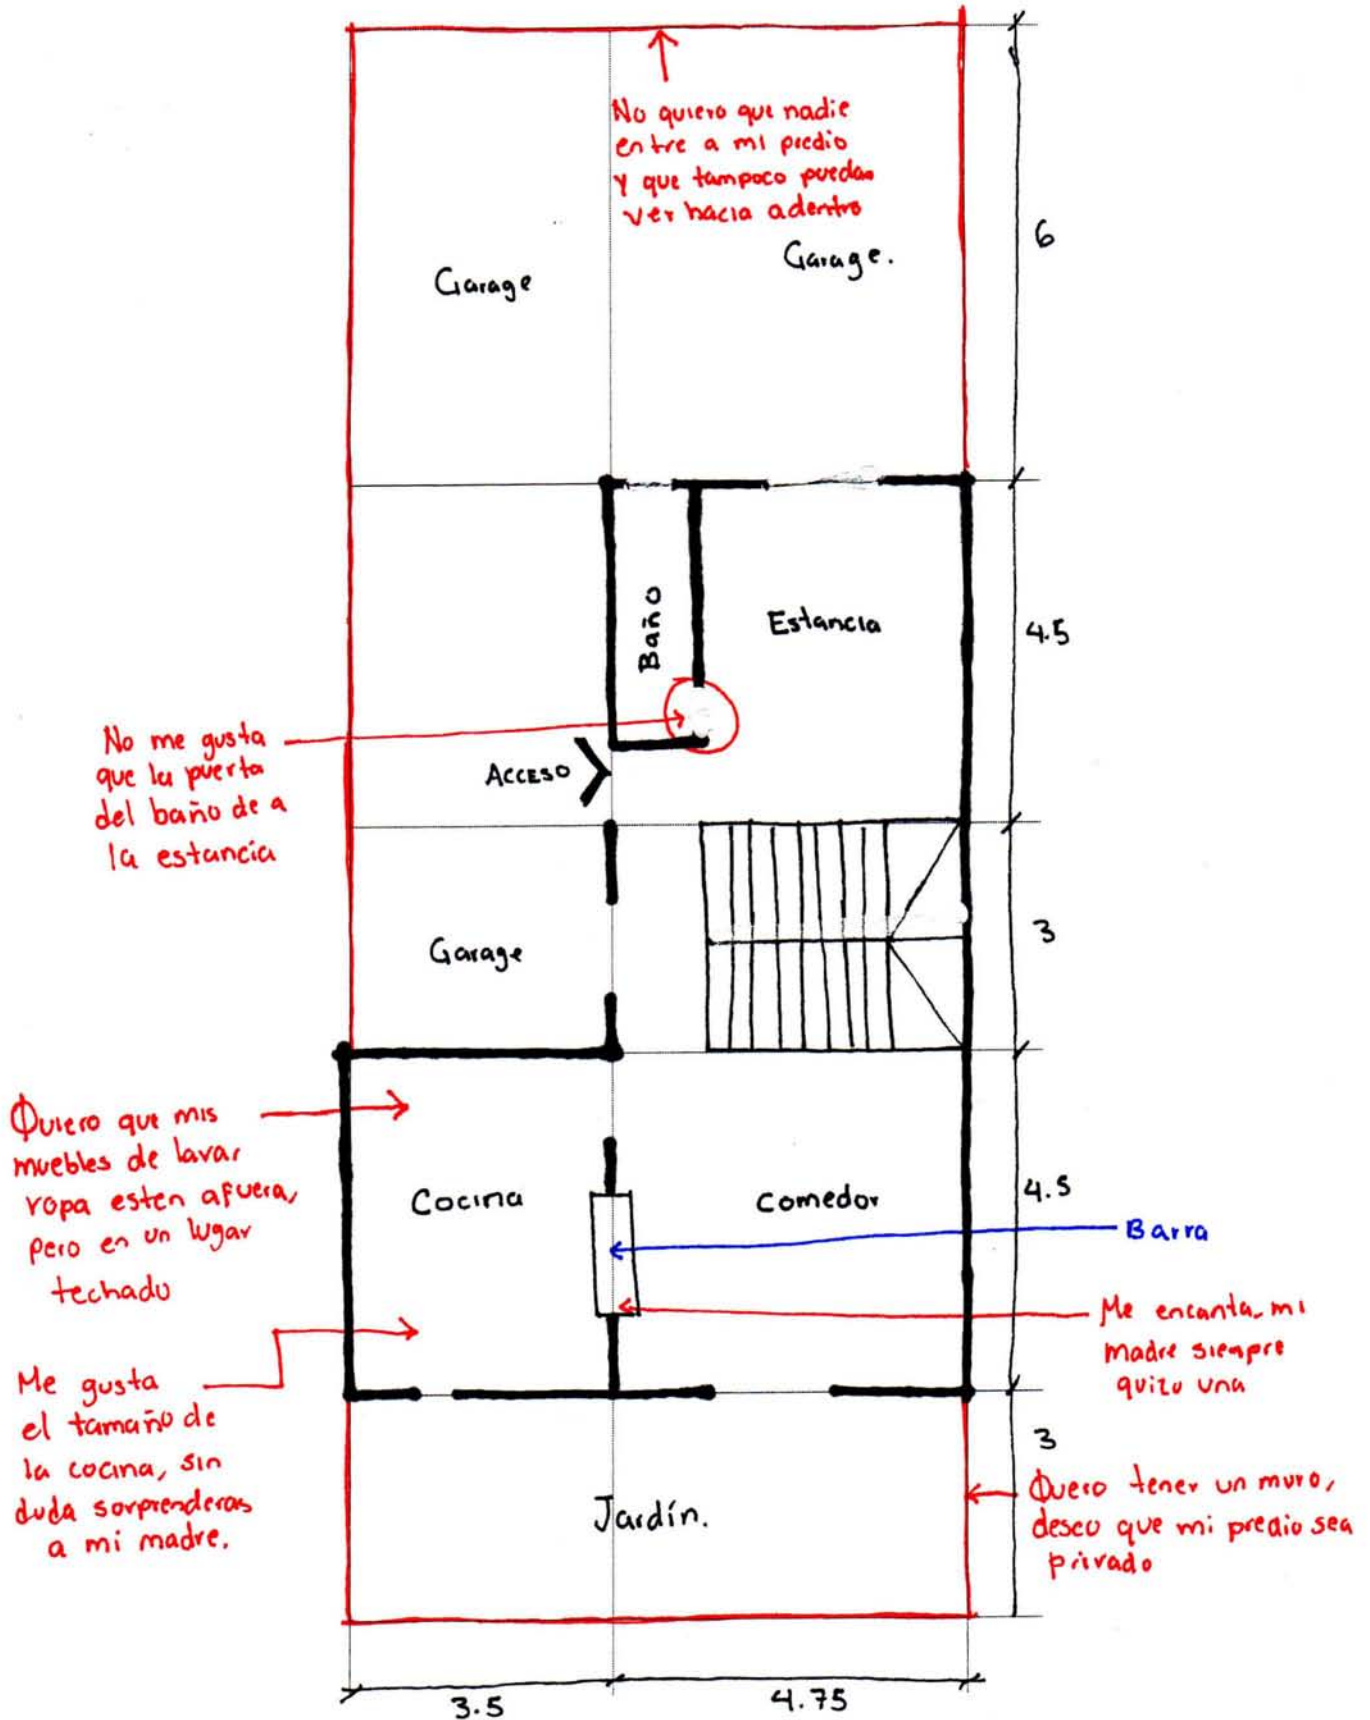 No quiero que nadie
entre a mi predio
y que tampoco puedan
ver hacia adentro
Garage
Garage.
6
Baño
Estancia
4.5
No me gusta
que la puerta
del baño de a
la estancia
ACCESO
Garage
3
Quiero que mis
muebles de lavar
ropa esten afuera,
pero en un lugar
techado
Cocina
comedor
4.5
Barra
Me encanta, mi
madre siempre
quizo una
Me gusta
el tamaño de
la cocina, sin
duda sorprenderas
a mi madre.
Jardín.
3
Quero tener un muro,
deseo que mi predio sea
privado
3.5
4.75